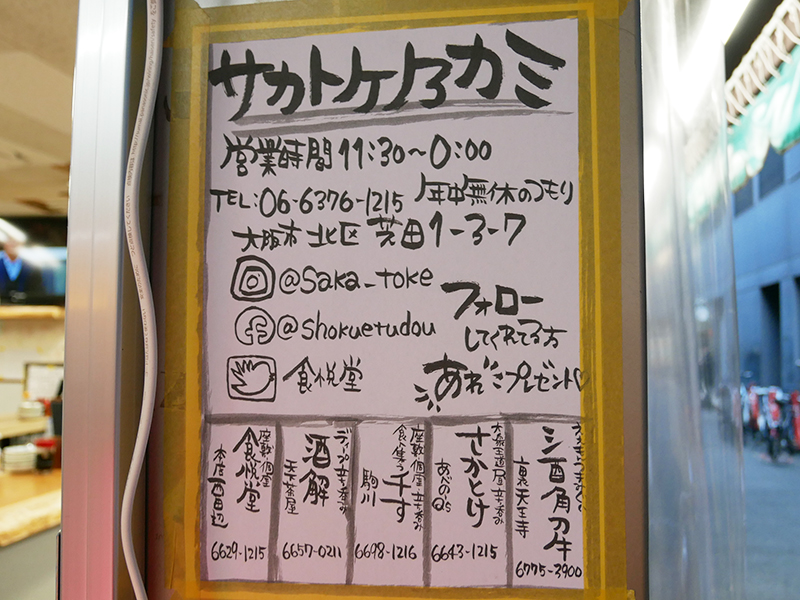 サカトケノカミ
営業時間 11:30〜0:00
TEL:06-6376-1215 年中無休のつもり
大阪市北区芝田1-3-7
@saka_toke
@shokuetudou
食悦堂
フォロー
してくれてる方
あれこれプレゼント♡
座敷・個室
食悦堂
本店西田辺
6629-1215
ディープ立ち呑み
酒解
天下茶屋
6657-0211
座敷・個室・立ち呑み
食べ集う
千す
駒川
6698-1216
さかとけ
あべのQ's
6643-1215
裏天王寺
6775-3900